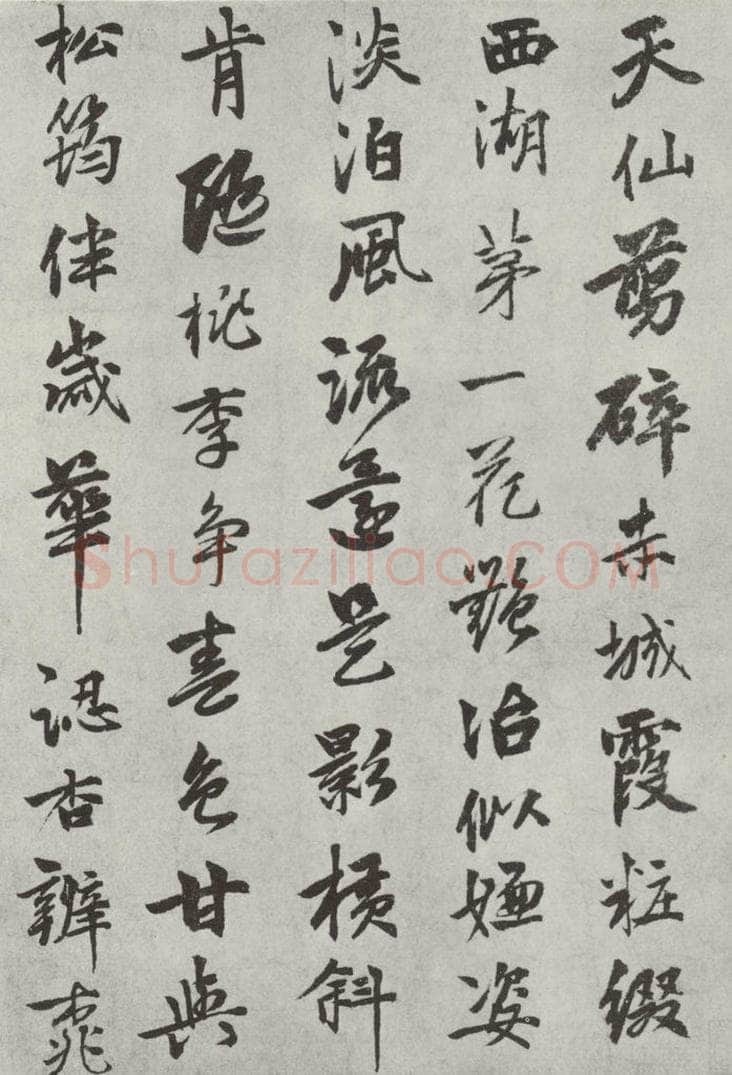 天仙剪碎赤城霞粧綴
西湖苐一花艷冶似姬姿
淡泊風流還是影橫斜
肯隨桃李爭春色甘與
松筠伴歲華認杏辨桃
Shufaziliao.COM